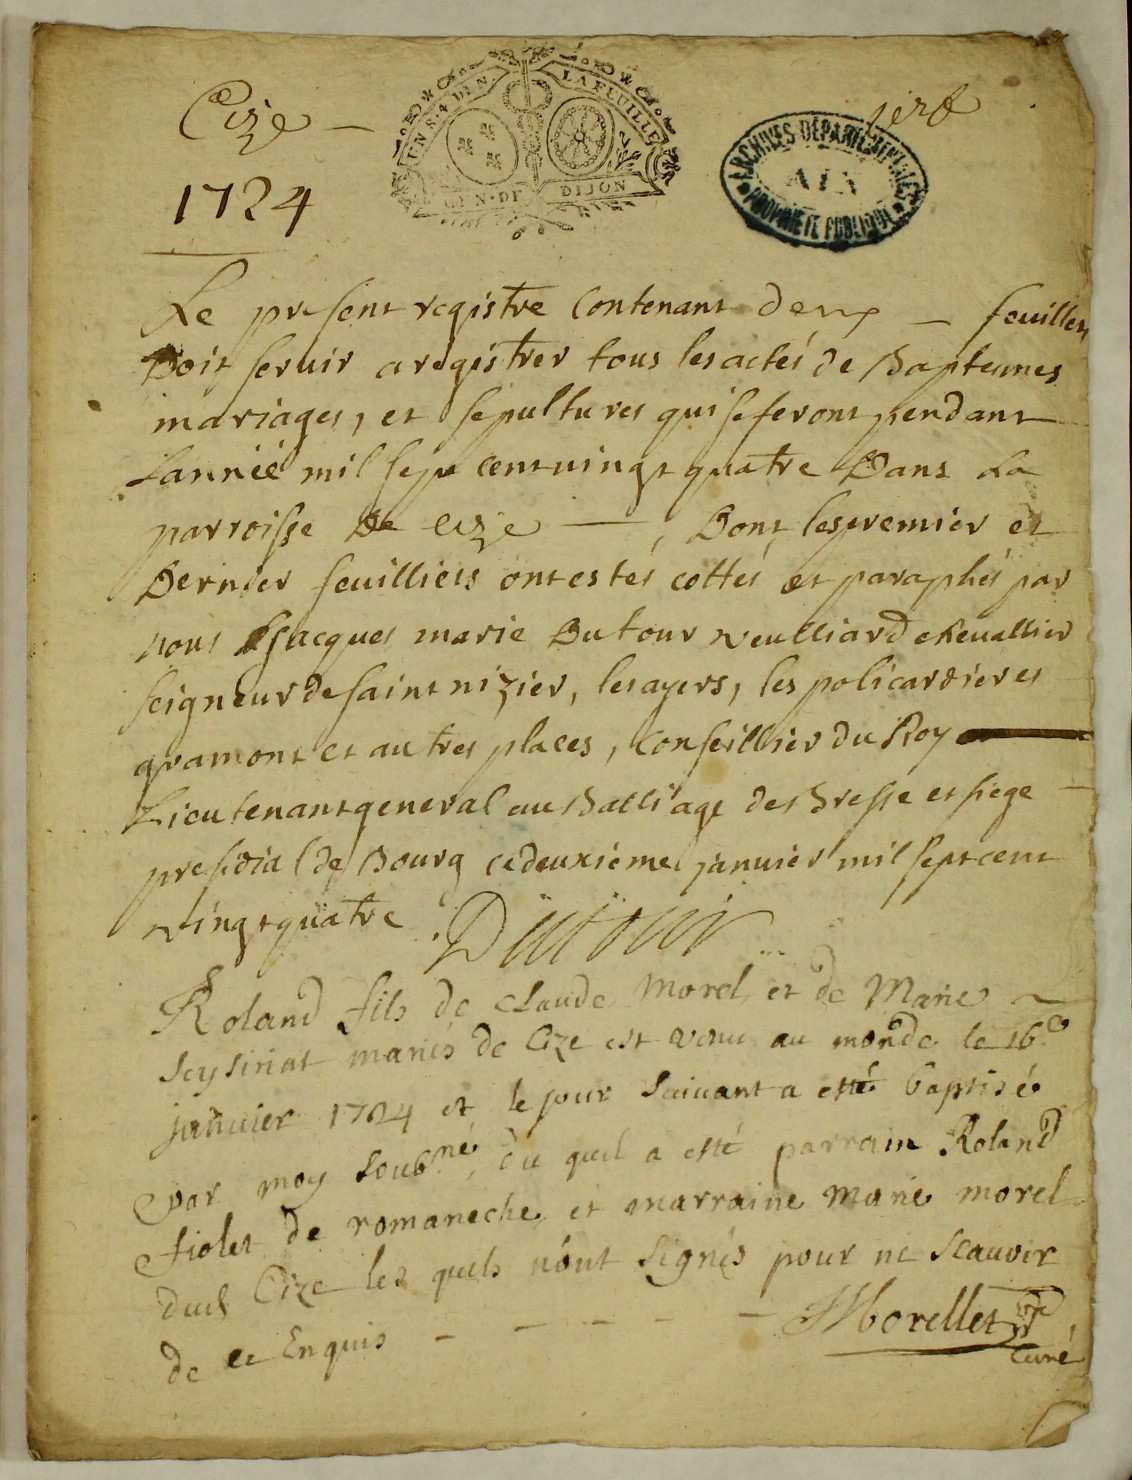 Cize
1724
UN S. 4 DEN. LA FEUILLE
GEN. DE DIJON
ARCHIVES DEPARTEMENTALES
AIN
PROPRIETE PUBLIQUE
Le present registre Contenant deux feuillets
Doit servir a registrer tous les actes de Baptemes
mariages, et sepultures qui se feront pendant
Lannéé mil sept cent vingt quatre Dans La
parroisse De Cize, Dont les premier et
Dernier feuilliets ont estés cottés et paraphés par
nous Jacques marie Dutour veulliard chevallier
seigneur de saint nizier, les ayers, les policardieres
gramont et autres places, Conseillier du Roy
Lieutenant general au Balliage des Bresse et siege
presidial de Bourg ce deuxième janvier mil sept cent
vingt quatre Dutour
Roland fils de claude Morel et de Marie
Seysiriat mariés de Cize est venu au monde le 16e
janvier 1724 et le jour Suivant a esté baptisé
par moy Soubné, du quel a esté parrain Roland
fiolet de romaneche et marraine marie morel
dud Cize les quels n'ont Signés pour ne Scauoir
de ce Enquis Morellet
Curé